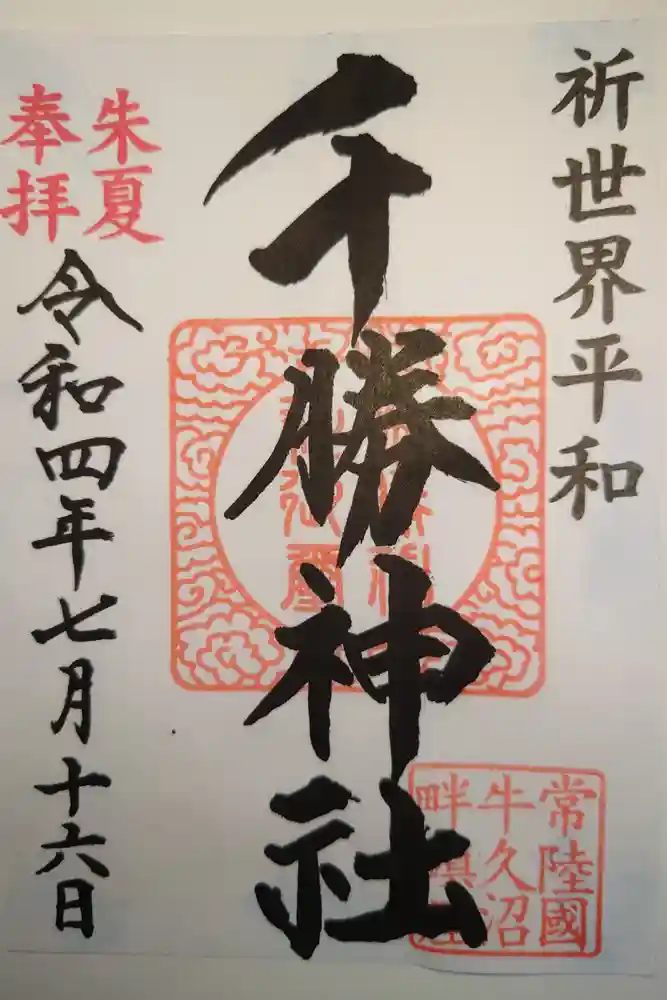 祈世界平和
千勝神社
朱夏
奉拝
令和四年七月十六日
常陸國
牛久沼
畔